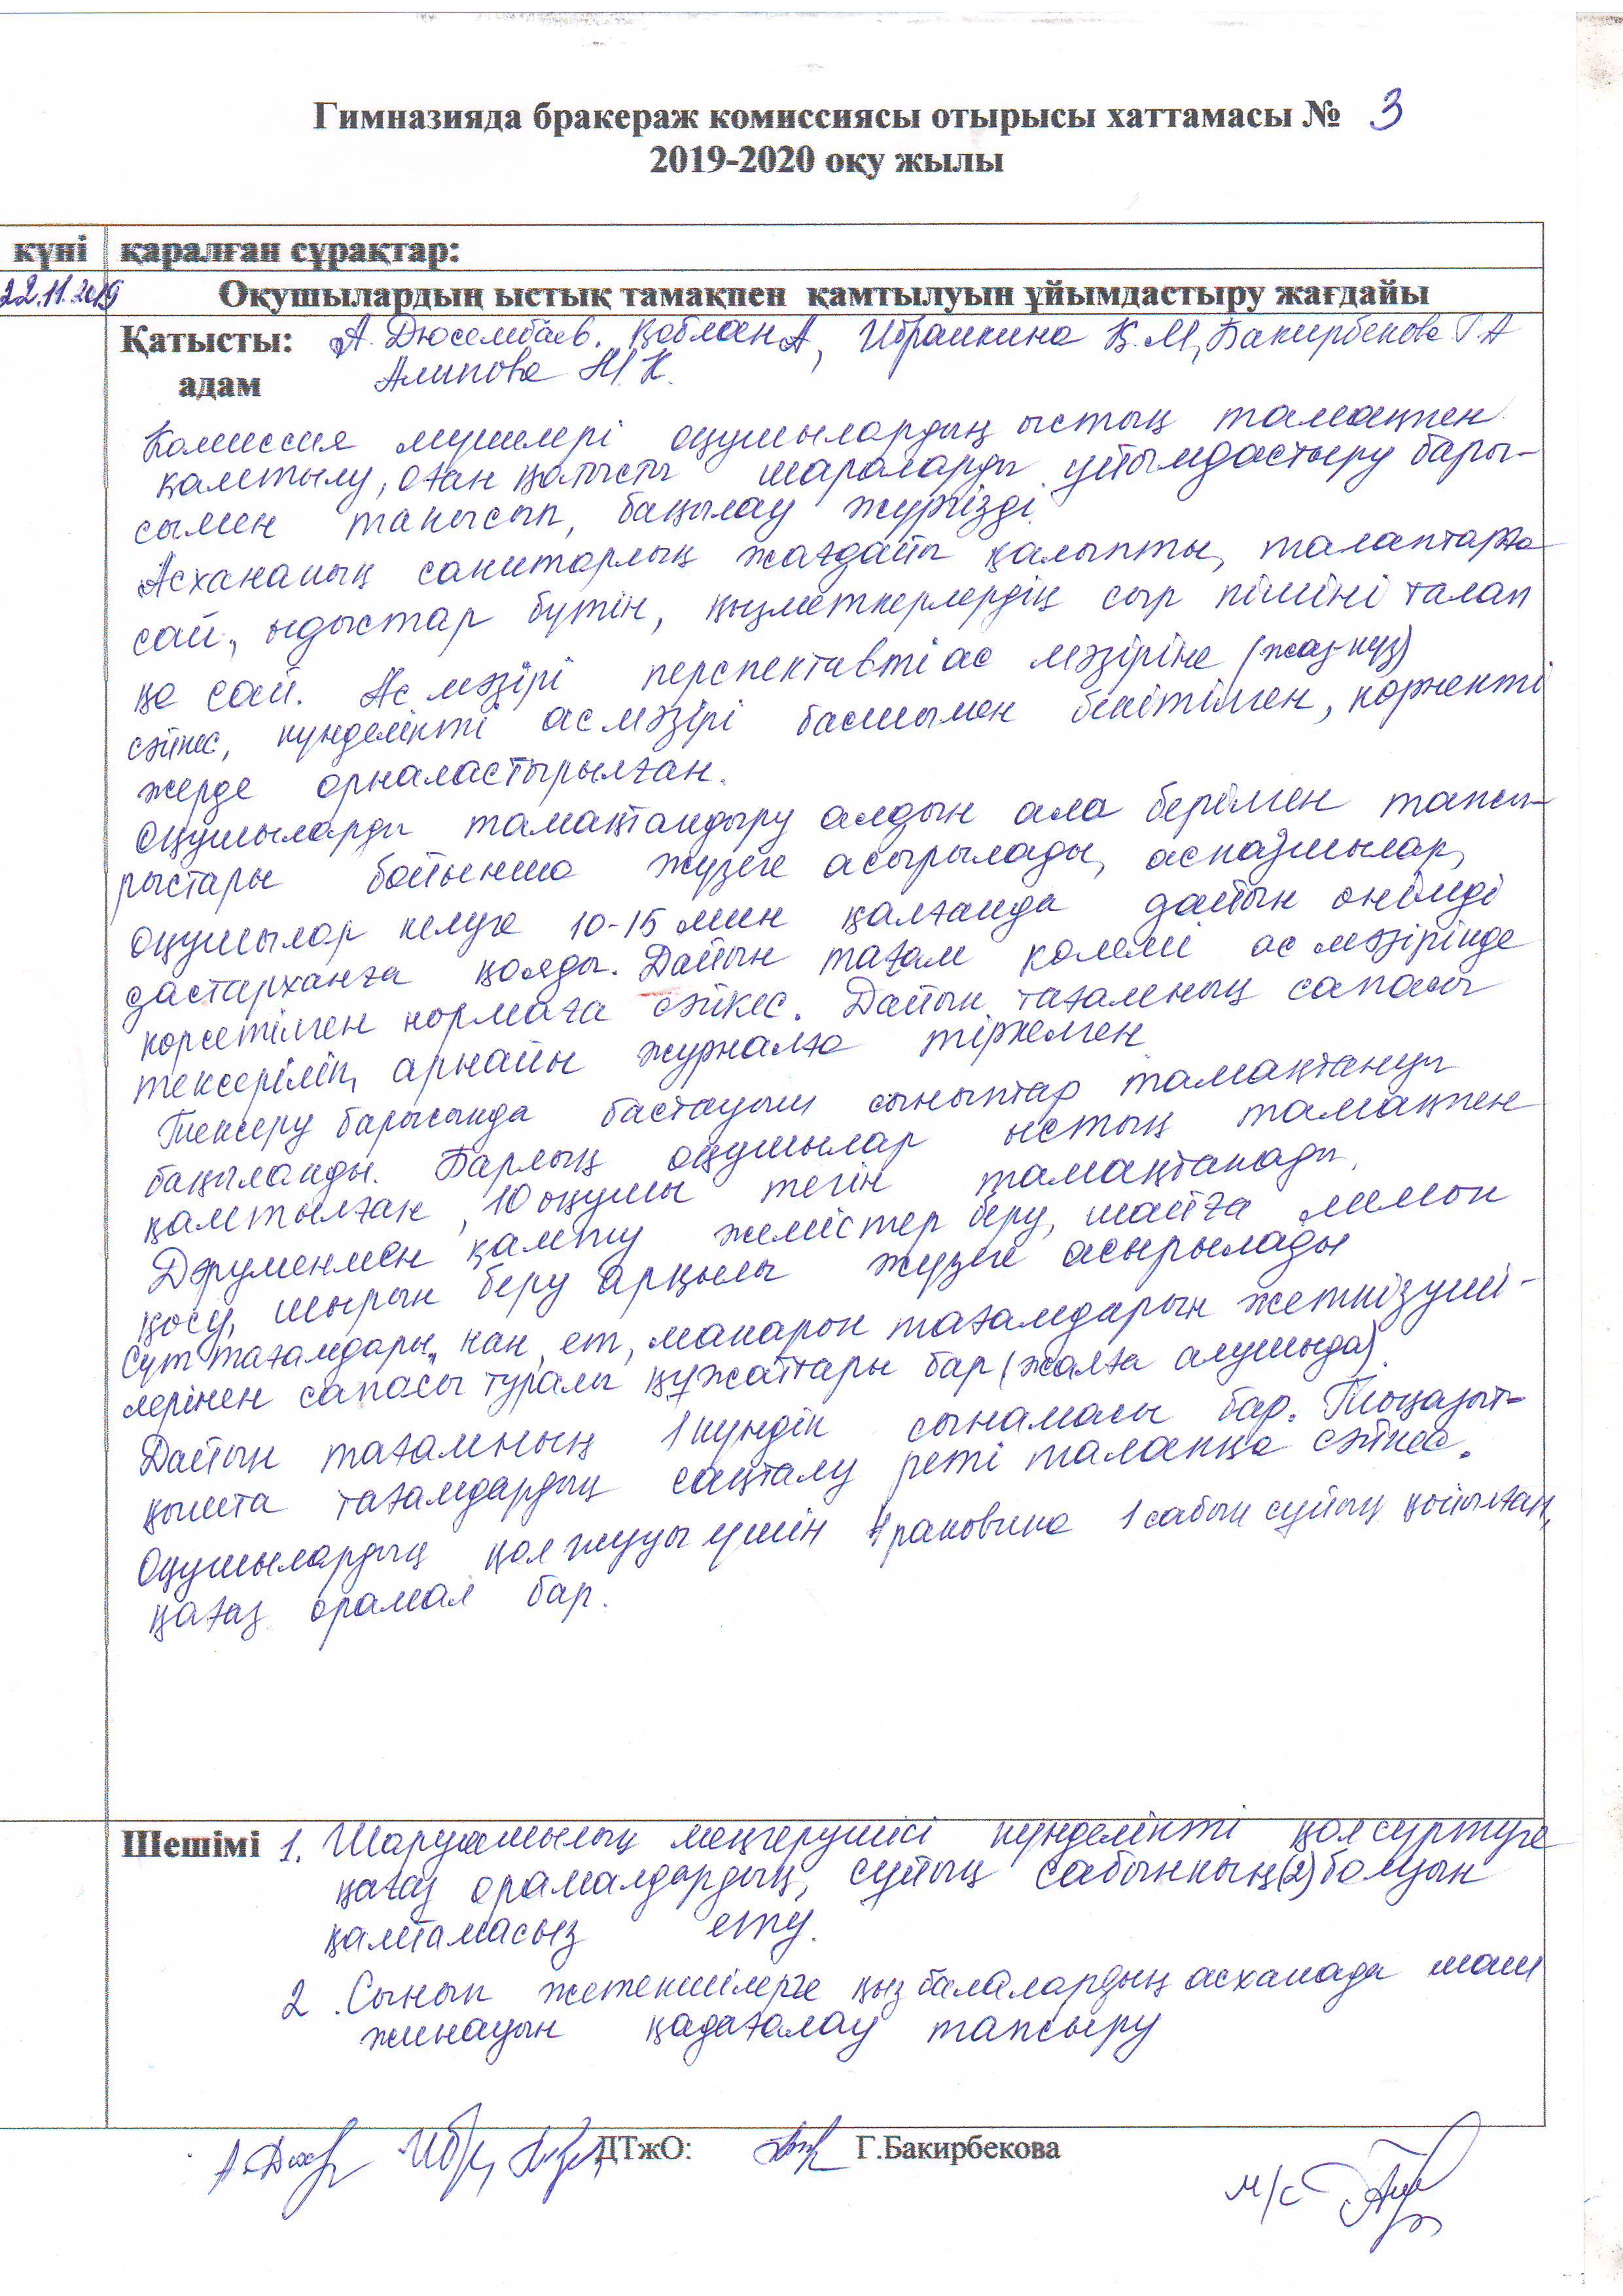 Гимназияда бракераж комиссиясы отырысы хаттамасы № 3
2019-2020 оқу жылы
күні қаралған сұрақтар:
22.11.2019 Оқушылардың ыстық тамақпен қамтылуын ұйымдастыру жағдайы
Қатысты: А. Дюсембаев, Қаблан А, Ибраикина Қ.М, Бакирбекова Г А
адам Алипова М. К.
Комиссия мүшелері оқушылардың ыстық тамақпен
қамтылу, оған қатысты шараларды ұйымдастыру бары-
сымен танысып, бақылау жүргізді.
Асхананың санитарлық жағдайы қалыпты, талаптарға
сай, ыдыстар бүтін, қызметкерлердің сыр киімінің талап
қа сай. Ас мәзірі перспективті ас мәзіріне (жаз-күз)
сәйкес, күнделікті ас мәзірі басшымен бекітілген, көрнекті
жерде орналастырылған.
Оқушыларды тамақтандыру алдын ала берілген тапсы-
рыстары бойынша жүзеге асырылады, аспазшылар,
оқушылар келуге 10-15 мин қалғанда дайын өнімді
дастарханға қояды. Дайын тағам көлемі ас мәзірінде
көрсетілген нормаға сәйкес. Дайын тағамның сапасы
тексеріліп, арнайы журналға тіркелген
Тексеру барысында бастауыш сыныптар тамақтануы
бақыланды. Барлық оқушылар ыстық тамақпен
қамтылған, 10 оқушы тегін тамақтанады.
Дәруменмен қамту жемістер беру, шайға лимон
қосу, шырын беру арқылы жүзеге асырылады
Сүт тағамдары, нан, ет, макарон тағамдарын жеткізуші-
лерінен сапасы туралы құжаттары бар (жалға алушыда).
Дайын тағамның 1 күндік сынамасы бар. Тоңазыт-
қышта тағамдардың сақталу реті талапқа сәйкес.
Оқушылардың қол жууы үшін 4 раковина 1 сабын сұйық қойылған,
қағаз орамал бар.
Шешімі 1. Шаруашылық меңгерушісі күнделікті қол сүртуге
қағаз орамалдардың, сұйық сабынның (2) болуын
қамтамасыз ету.
2. Сынып жетекшілерге қыз балалардың асханада шаш
жинауын қадағалау тапсыру
ДТжО: Г.Бакирбекова
м/с